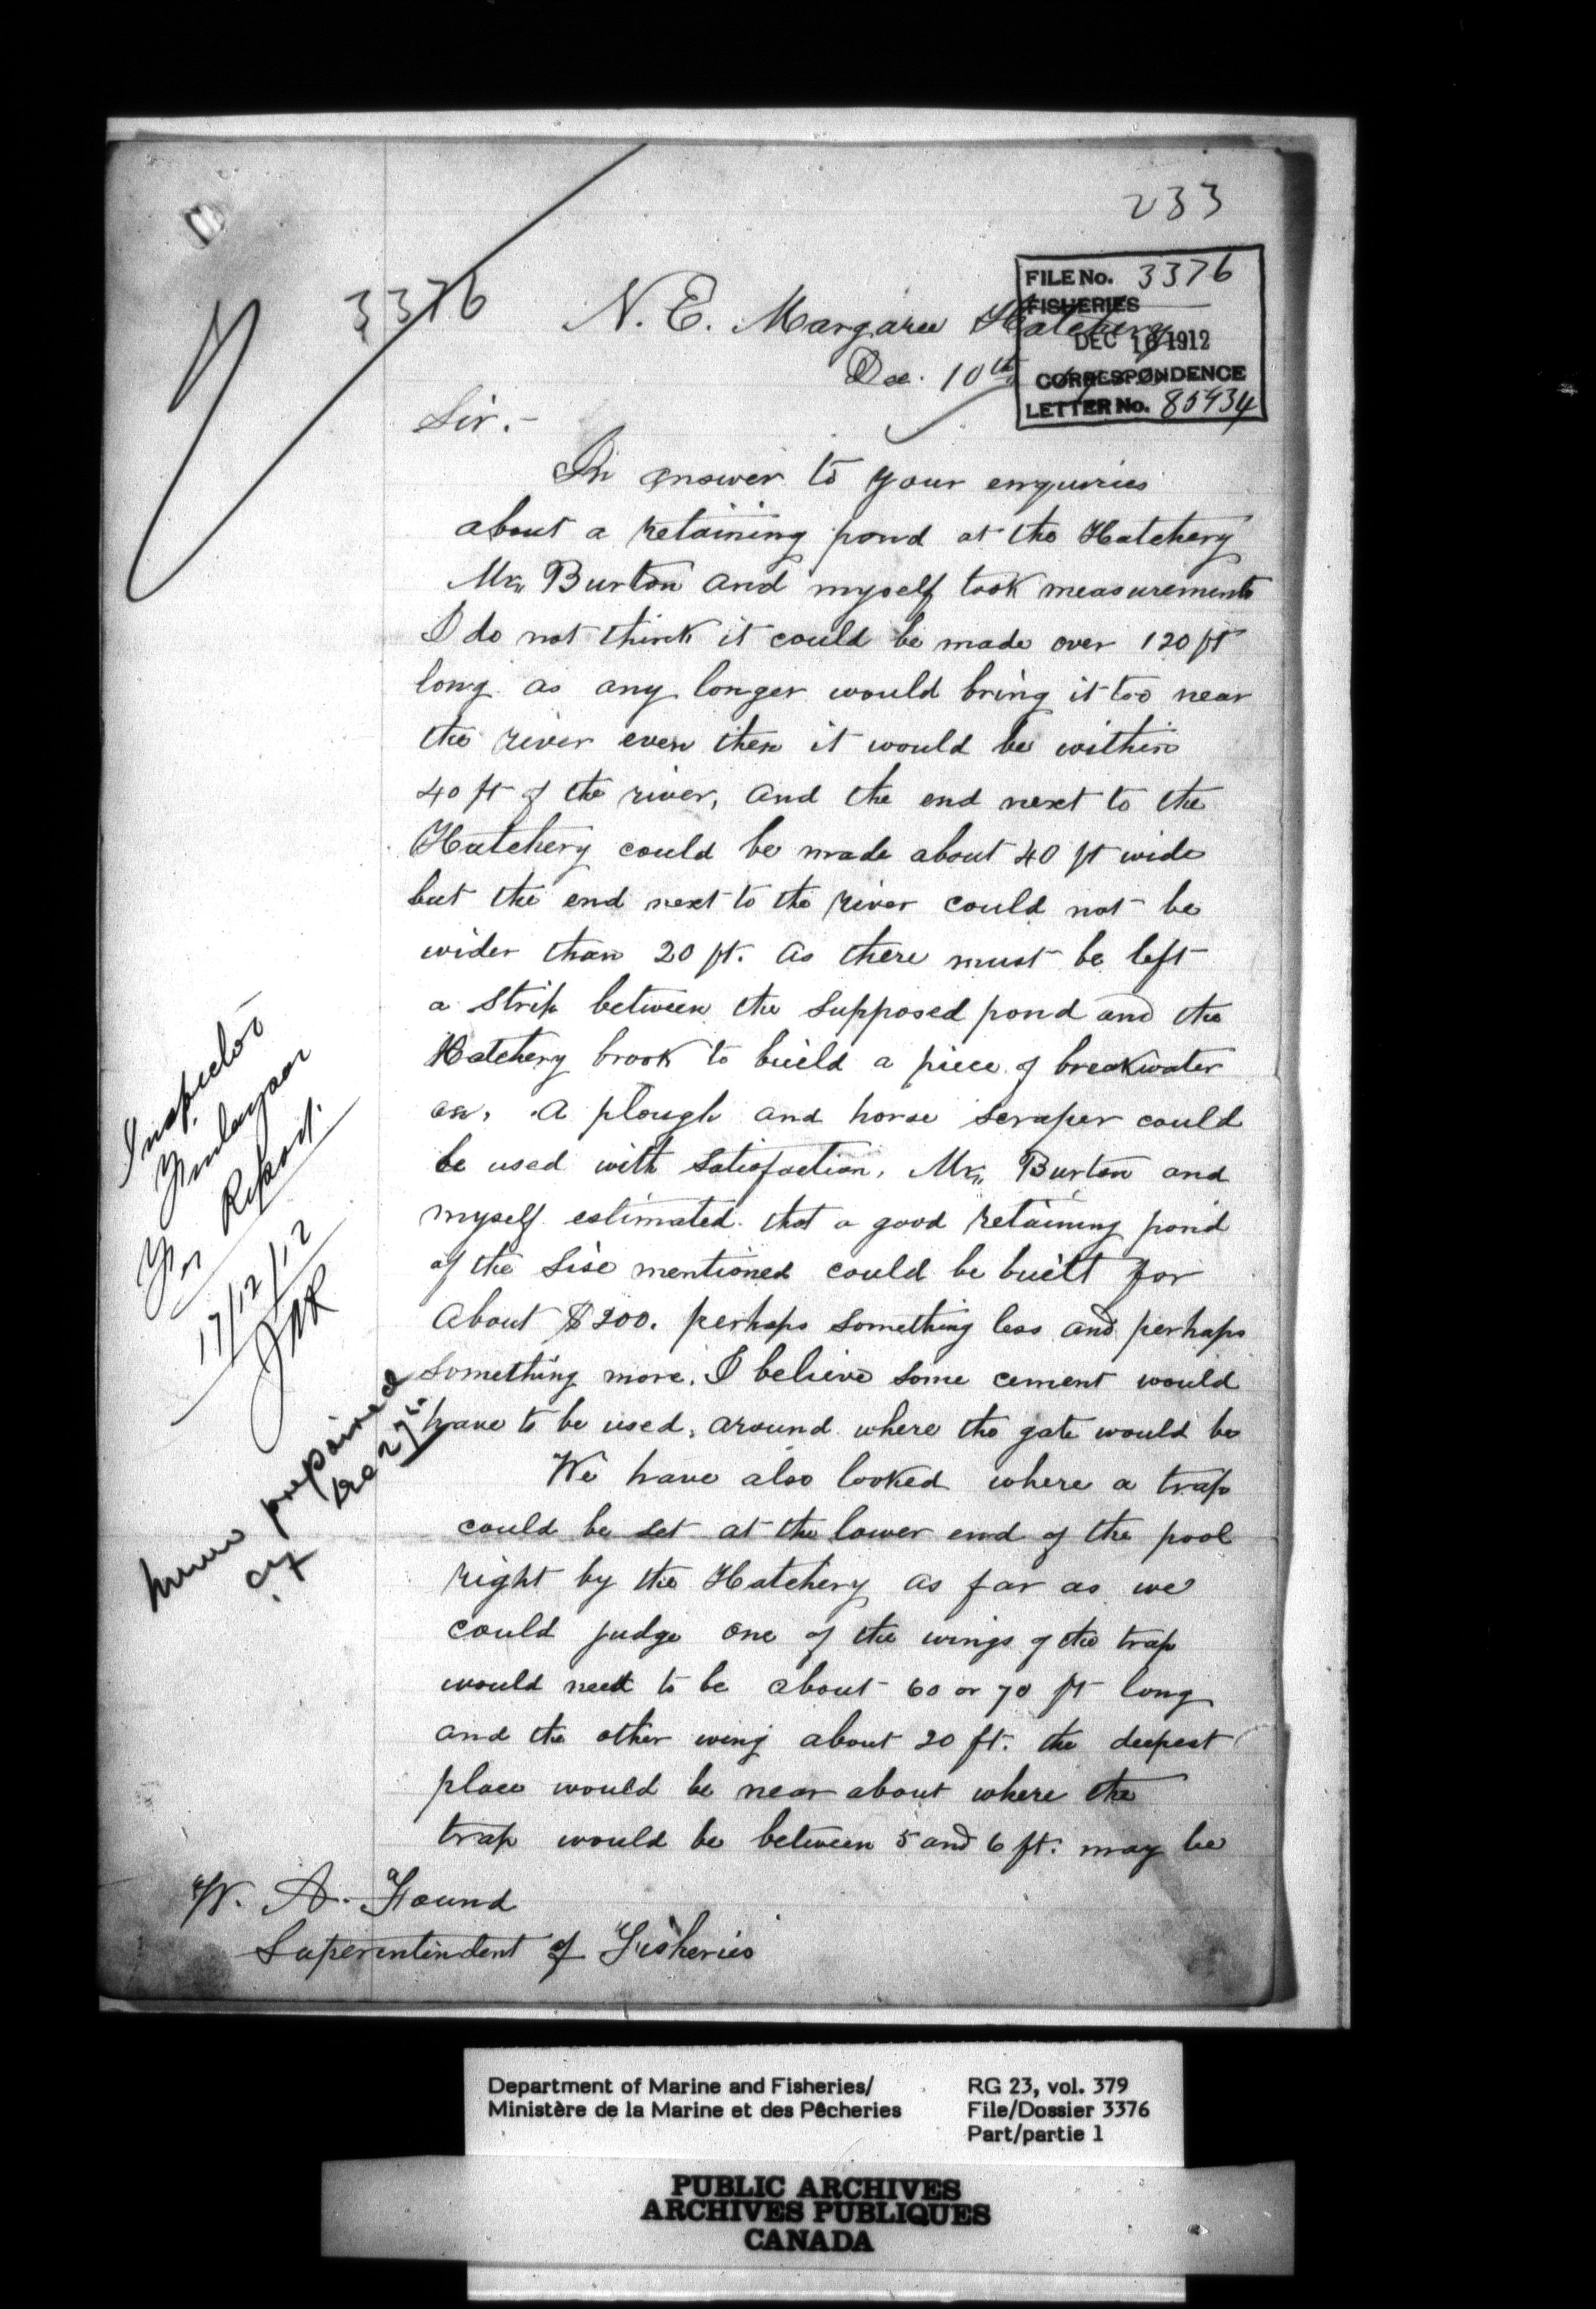 233
3376
FILE No. 3376
FISHERIES
DEC 16 1912
CORRESPONDENCE
LETTER No. 85934
N. E. Margaree Hatchery
Dec. 10th
Sir.-
In answer to your enquiries
about a retaining pond at the Hatchery
Mr. Burton and myself took measurements
I do not think it could be made over 120 ft
long as any longer would bring it too near
the river even then it would be within
40 ft of the river, and the end next to the
Hatchery could be made about 40 ft wide
but the end next to the river could not be
wider than 20 ft. as there must be left
a strip between the supposed pond and the
Hatchery brook to build a piece of breakwater
on. A plough and horse scraper could
be used with satisfaction. Mr. Burton and
myself estimated that a good retaining pond
of the sise mentioned could be built for
about $200. perhaps something less and perhaps
something more. I believe some cement would
have to be used, around where the gate would be
We have also looked where a trap
could be set at the lower end of the pool
right by the Hatchery as far as we
could judge one of the wings of the trap
would need to be about 60 or 70 ft long
and the other wing about 20 ft. the deepest
place would be near about where the
trap would be between 5 and 6 ft. may be
W. A. Found
Superintindent of Fisheries
Inspector
For Report.
17/12/12
prepaired
Department of Marine and Fisheries/
Ministère de la Marine et des Pêcheries
RG 23, vol. 379
File/Dossier 3376
Part/partie 1
PUBLIC ARCHIVES
ARCHIVES PUBLIQUES
CANADA